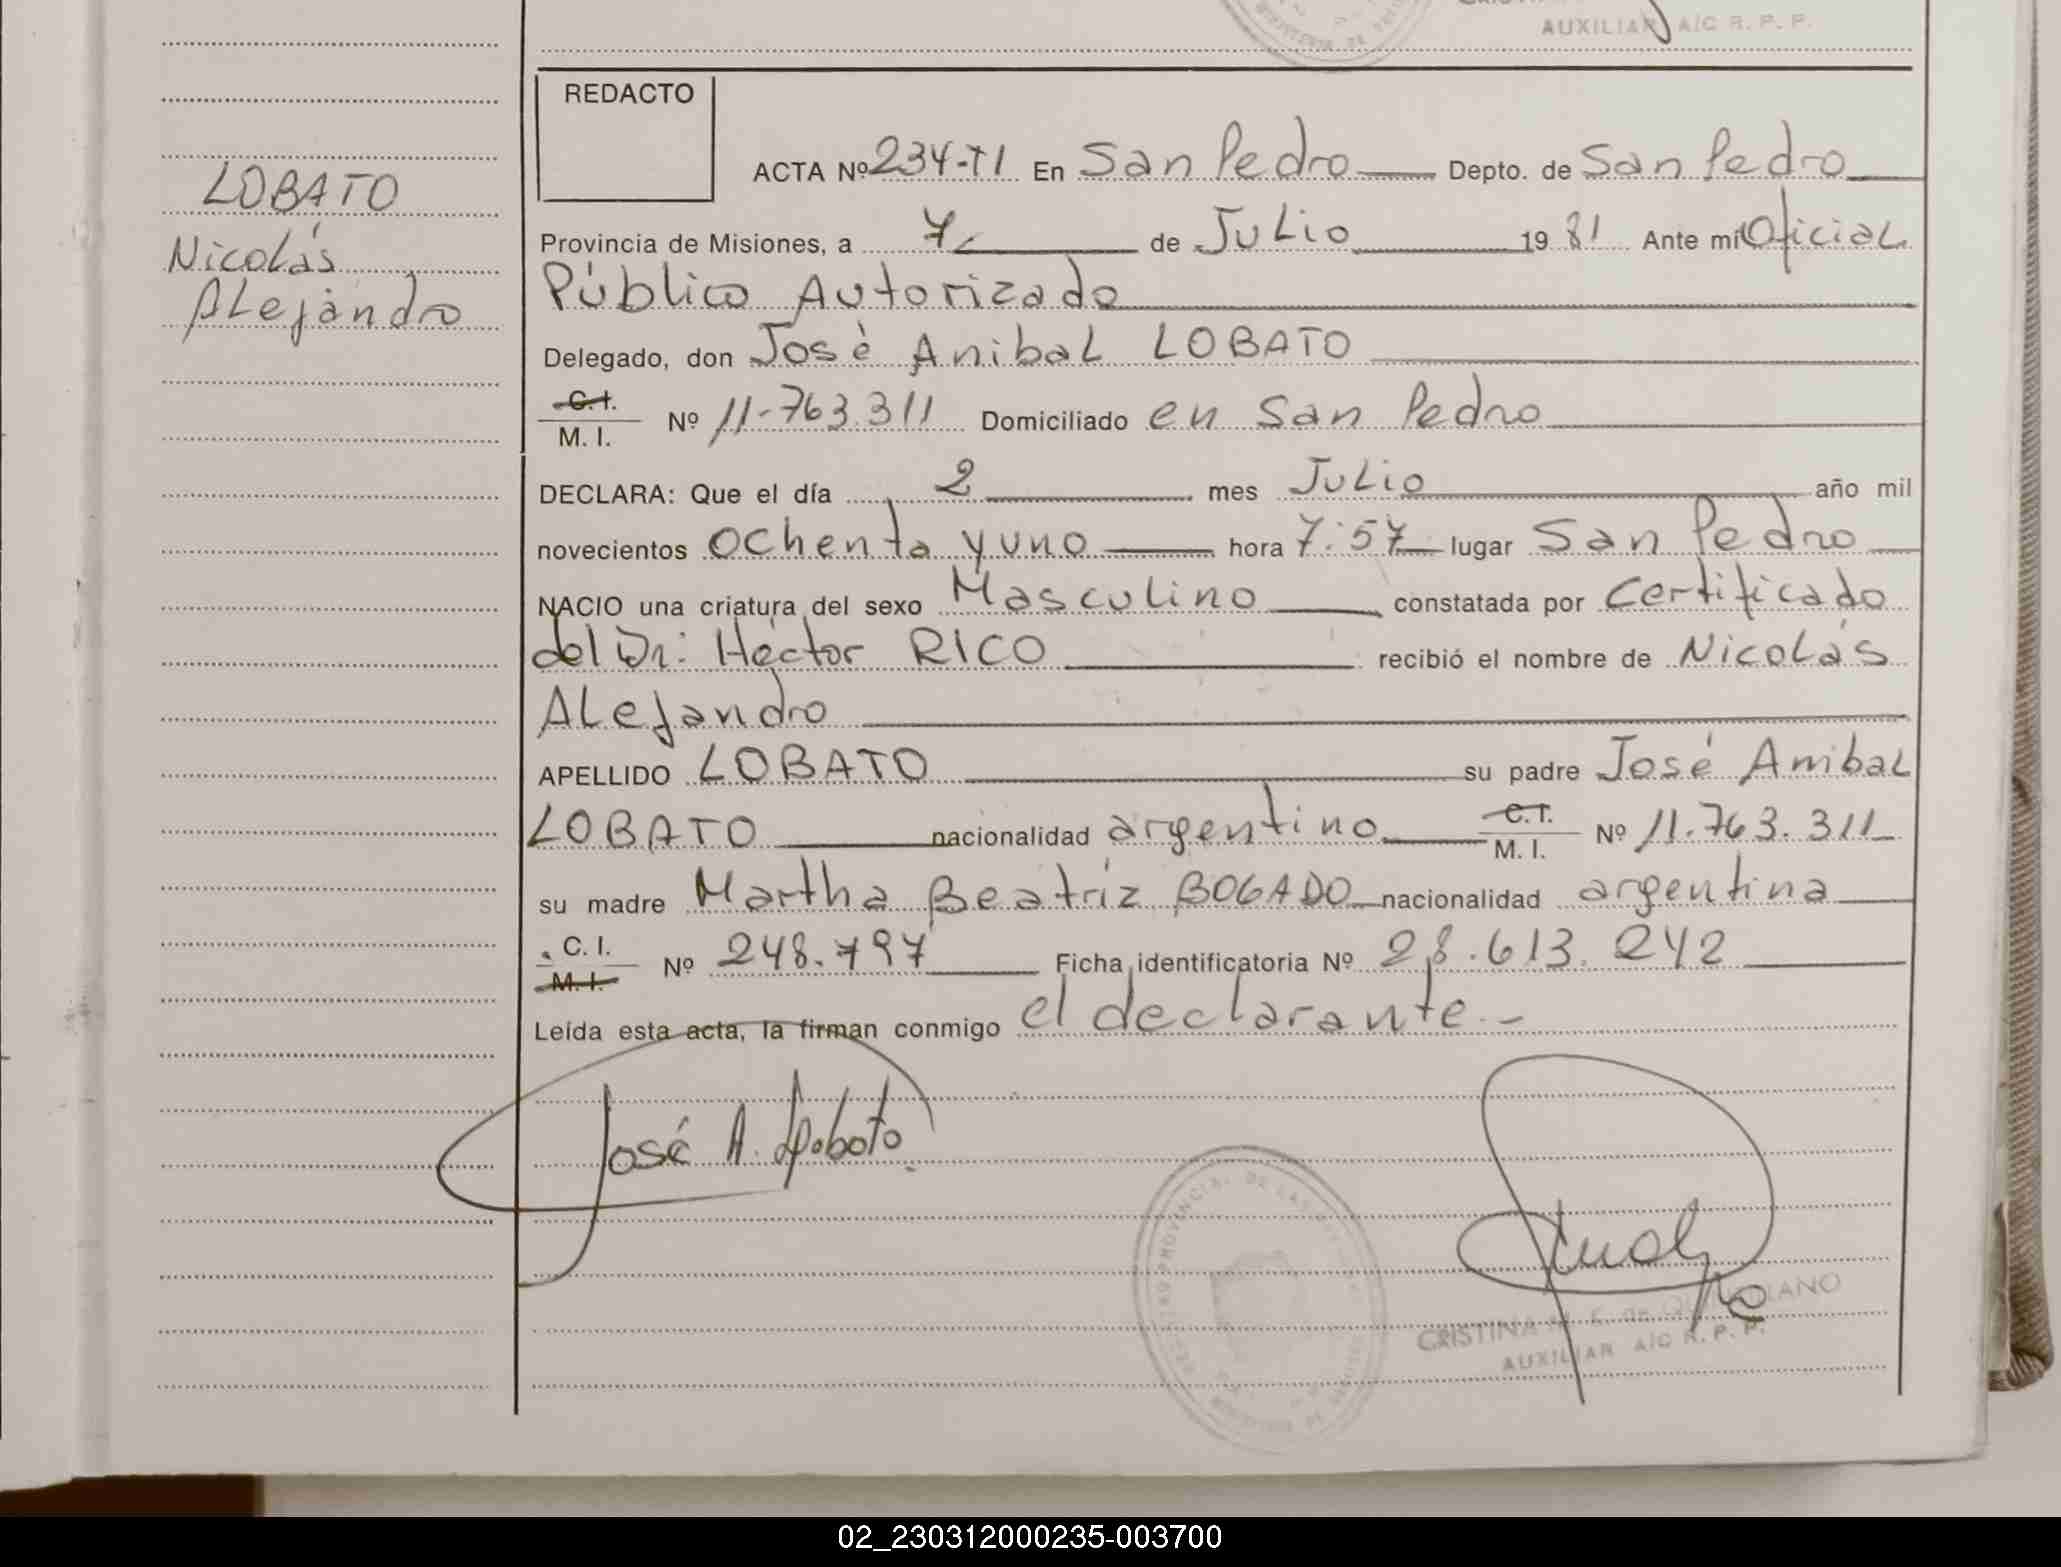 AUXILIAR A/C R. P. P.
REDACTO
ACTA Nº 234-T1 En San Pedro Depto. de San Pedro
LOBATO
Nicolás
Alejandro
Provincia de Misiones, a 7 de Julio 1981 Ante mi Oficial
Público Autorizado
Delegado, don José Anibal LOBATO
C.I.
M. I. Nº 11-763.311 Domiciliado en San Pedro
DECLARA: Que el día 2 mes Julio año mil
novecientos ochenta y uno hora 7:57 lugar San Pedro
NACIO una criatura del sexo Masculino constatada por Certificado
del Dr: Héctor RICO recibió el nombre de Nicolás
Alejandro
APELLIDO LOBATO su padre José Anibal
LOBATO nacionalidad argentino C.I.
M. I. Nº 11.763.311
su madre Martha Beatríz BOGADO nacionalidad argentina
C. I.
M. I. Nº 248.797 Ficha identificatoria Nº 28.613.242
Leída esta acta, la firman conmigo el declarante.-
José A. Lobato.
CRISTINA
AUXILIAR A/C R. P. P.
02_230312000235-003700